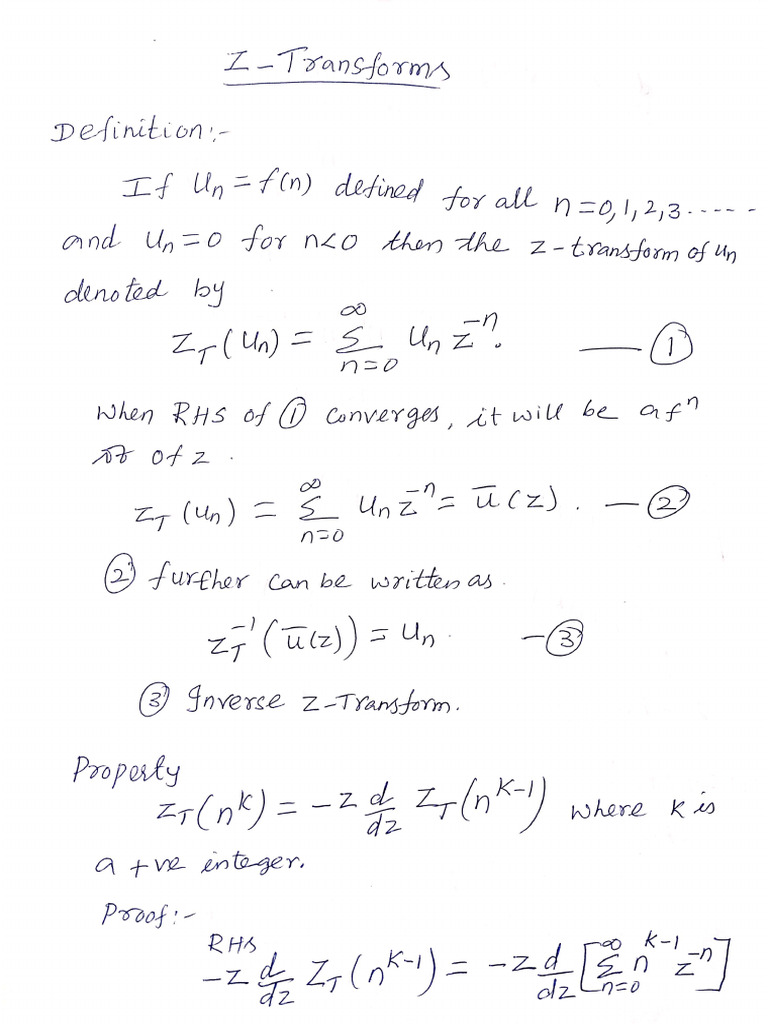 Z-Transforms
Definition:-
If Un = f(n) defined for all n=0,1,2,3.....-
and Un=0 for n<0 then the z-transform of un
denoted by
Z_T(Un) = ∑_{n=0}^{∞} Un z^{-n}. — ①
When RHS of ① converges, it will be a f^n
of z.
Z_T(un) = ∑_{n=0}^{∞} un z^{-n} = ū(z). — ②
② further can be written as.
Z_T^{-1}(ū(z)) = un. — ③
③ Inverse Z-Transform.
Property
Z_T(n^k) = -z d/dz Z_T(n^{k-1}) where k is
a +ve integer.
Proof:-
RHS
-z d/dz Z_T(n^{k-1}) = -z d/dz [∑_{n=0}^{∞} n^{k-1} z^{-n}]